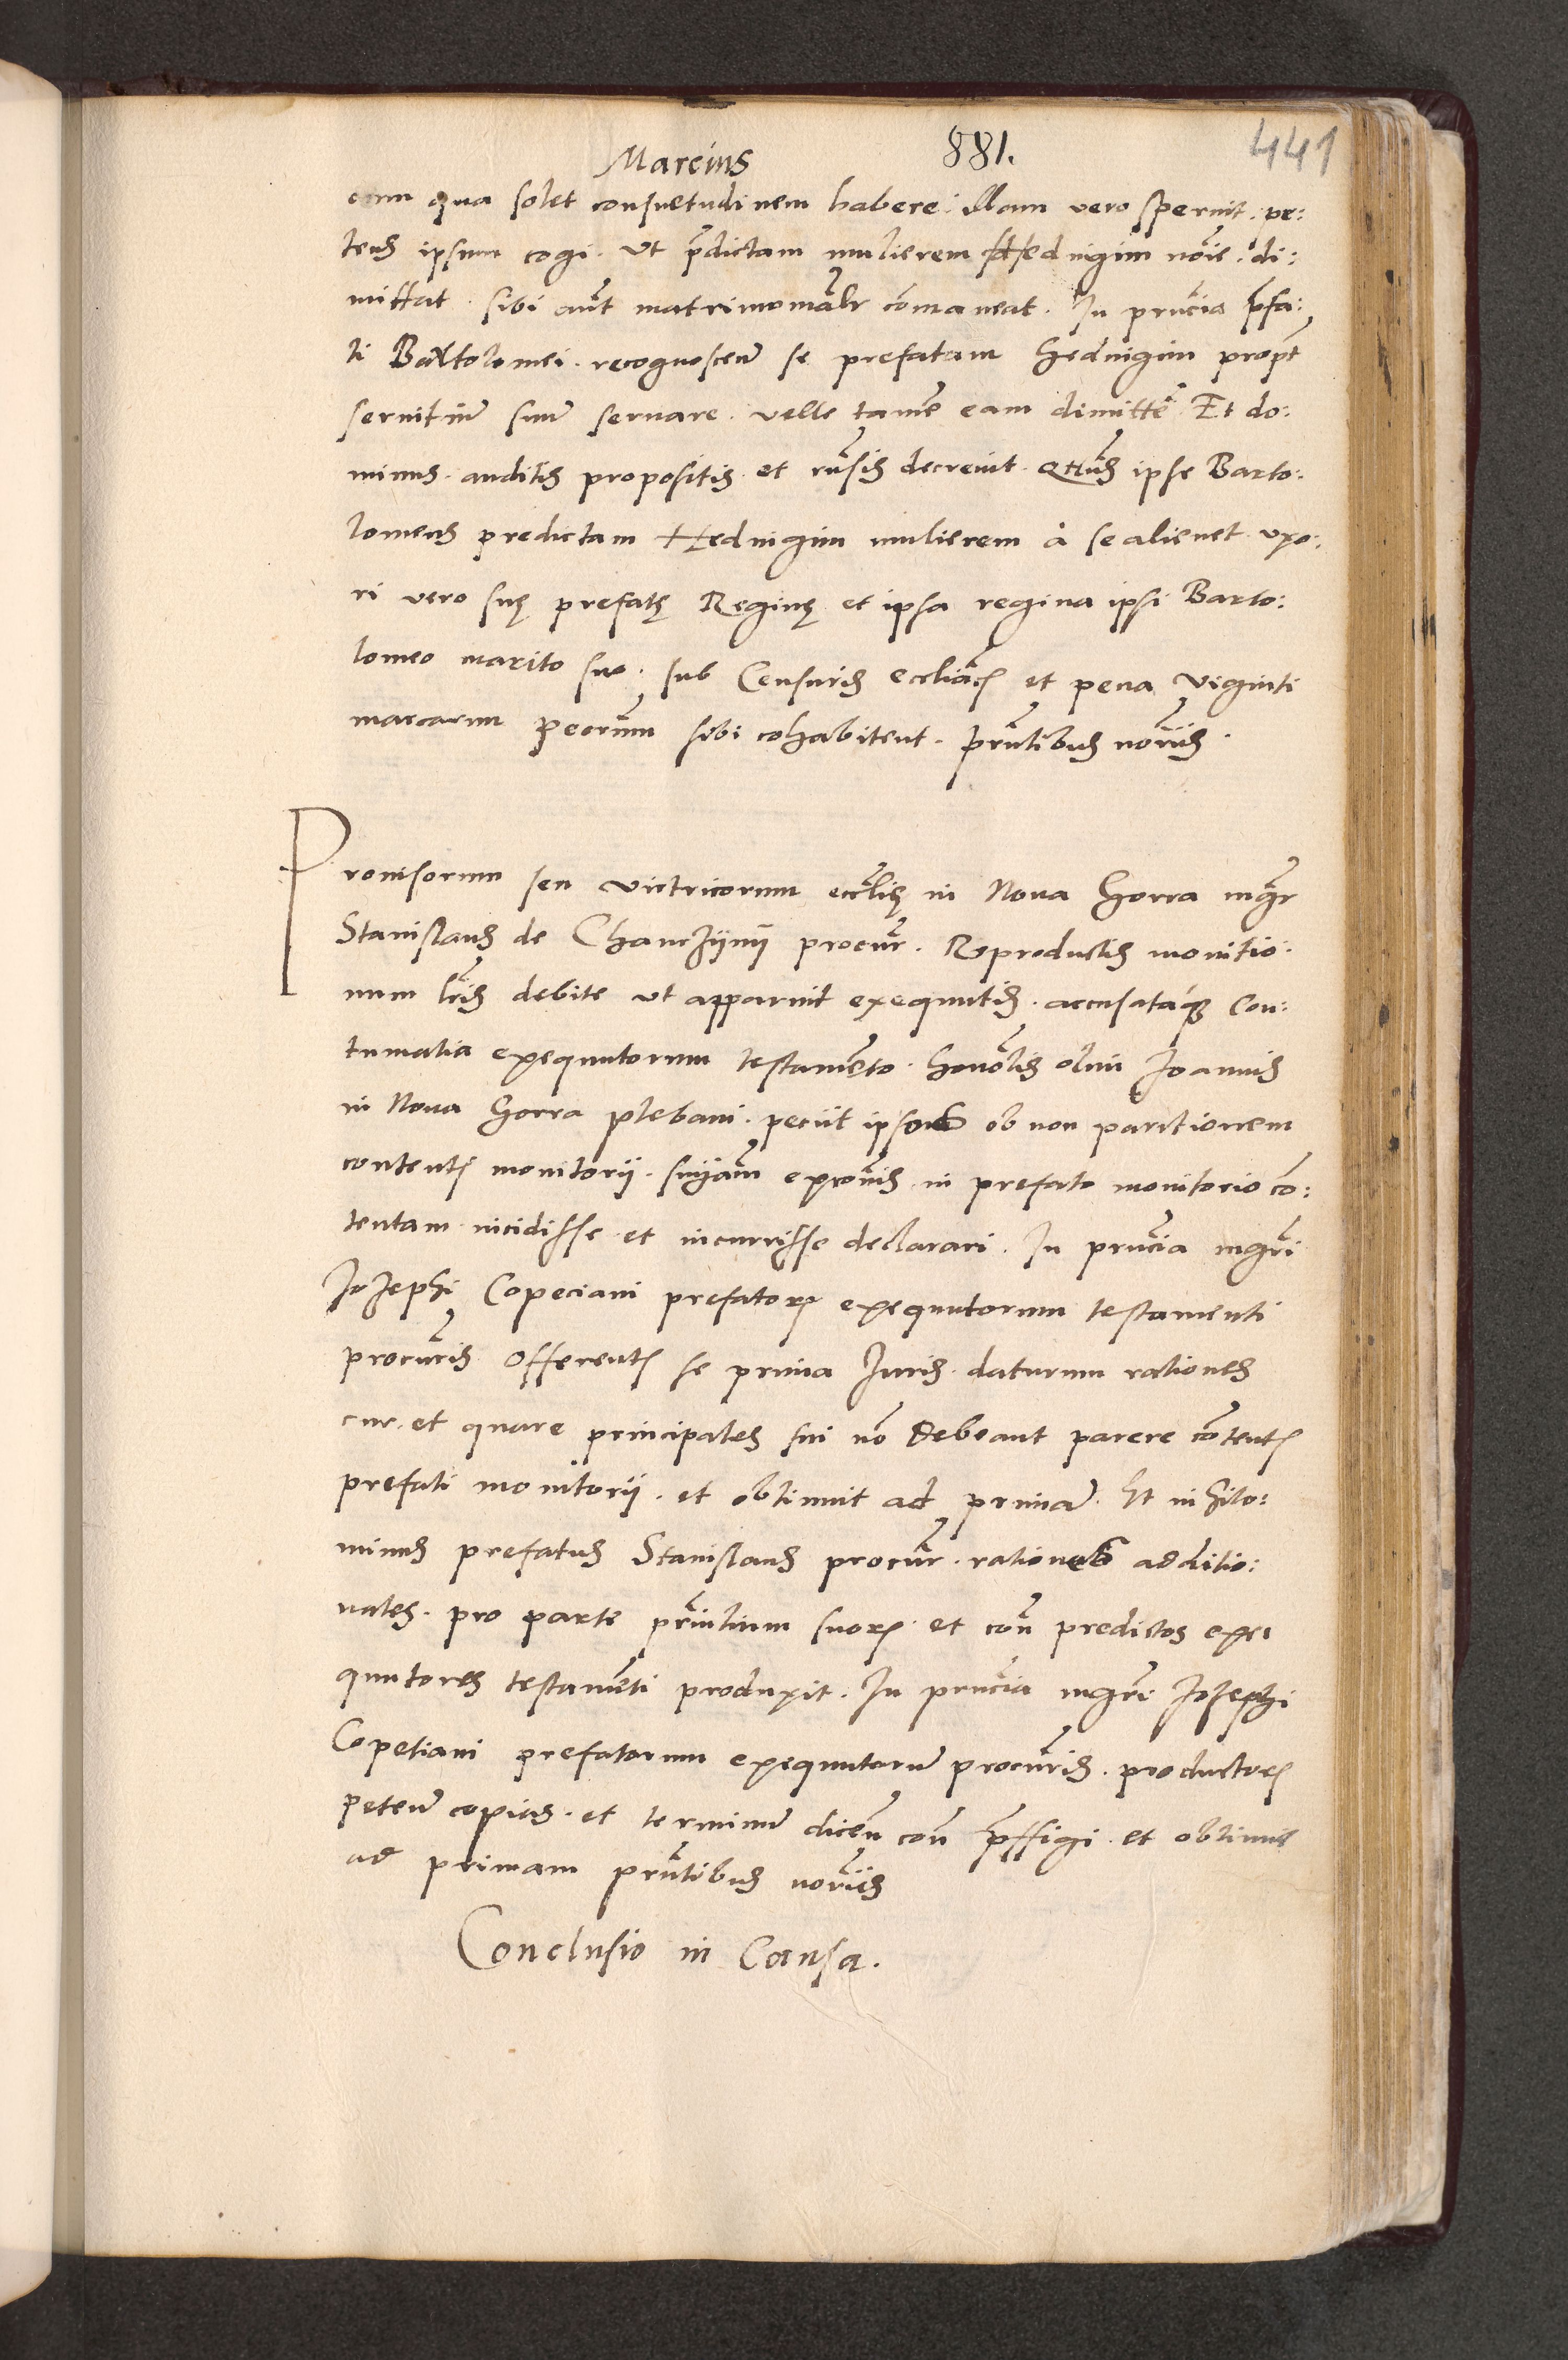 Marcius 881. 441
cum qua solet consuetudinem habere. illam vero spernit. pe:
tens ipsum cogi. Ut p̄dictam mulierem Heduigim nōīe. di:
mittat. sibi aūt matrimoniālr cōmaneat. In pr̄ncia p̄fa:
ti Bartolomei. recognoscen̄ se prefatam Heduigim propt̄
seruitiū suū seruare. velle tamē eam dimittē. Et do:
minus. auditis propositis. et rn̄sis decreuit. q̄tus ipse Barto:
lomeus predictam Heduigim mulierem à se alienet. uxo:
ri vero suę prefatę Reginę et ipsa regina ipsi Barto:
lomeo marito suo. sub Censuris eccliāꝭ et pena viginti
marcarum pecūm sibi cohabitent. pn̄tibus nōrijs.
Prouisorum seu victricorum ecclię in Noua Gorra mg̃r
Stanislaus de Chanczijnij procur̄. Reproductis monitio:
num lr̄is debite ut apparuit exequutis. accusataq̃ Con:
tumatia exequutorum testamēto. honōlis olim Joannis
in Noua Gorra plebani. peciit ipsos ob non paritionem
contentꝭ monitorij. sn̄iam ex̄conis in prefato monitorio cō:
tentam incidisse et incurrisse declarari. In pr̄ncia mgr̄i
Josephi Copeciani prefatoꝝ exequutorum testamenti
procur̄is offerentꝭ se prima Juris. daturum rationes
cur. et quare principales sui nō debeant parere cōtentꝭ
prefati monitorij. et obtinuit ad primā. Et nihilo:
minus prefatus Stanislaus procur̄. rationes additio:
nales. pro parte prīnlium suoꝝ. et con̄ predictos exe:
quutores testamēti produxit. In pr̄ncia mgr̄i Josephi
Copetiani prefatorum exequutorū procur̄is. productoꝝ
peten̄ copias. et terminū dicen̄ con̄ p̄ffigi. et obtinuit
ad primam prn̄tibus norijs
Conclusio in Causa.